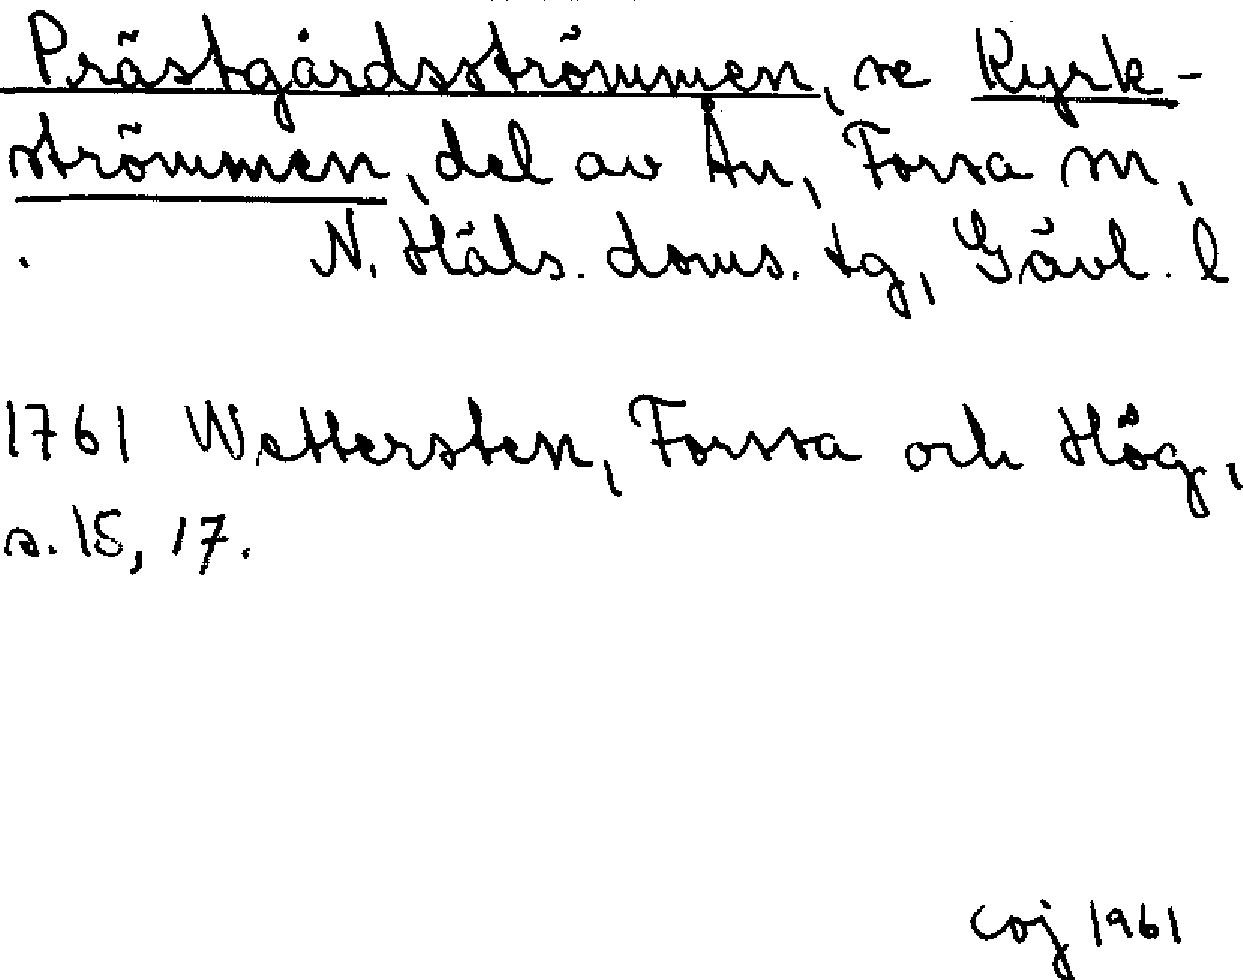 Prästgårdsströmmen, se Kyrk-
strömmen, del av Ån, Forsa sn,
N. Häls. doms. tg, Gävl. l
1761 Wettersten, Forssa och Hög,
s. 15, 17.
coj 1961